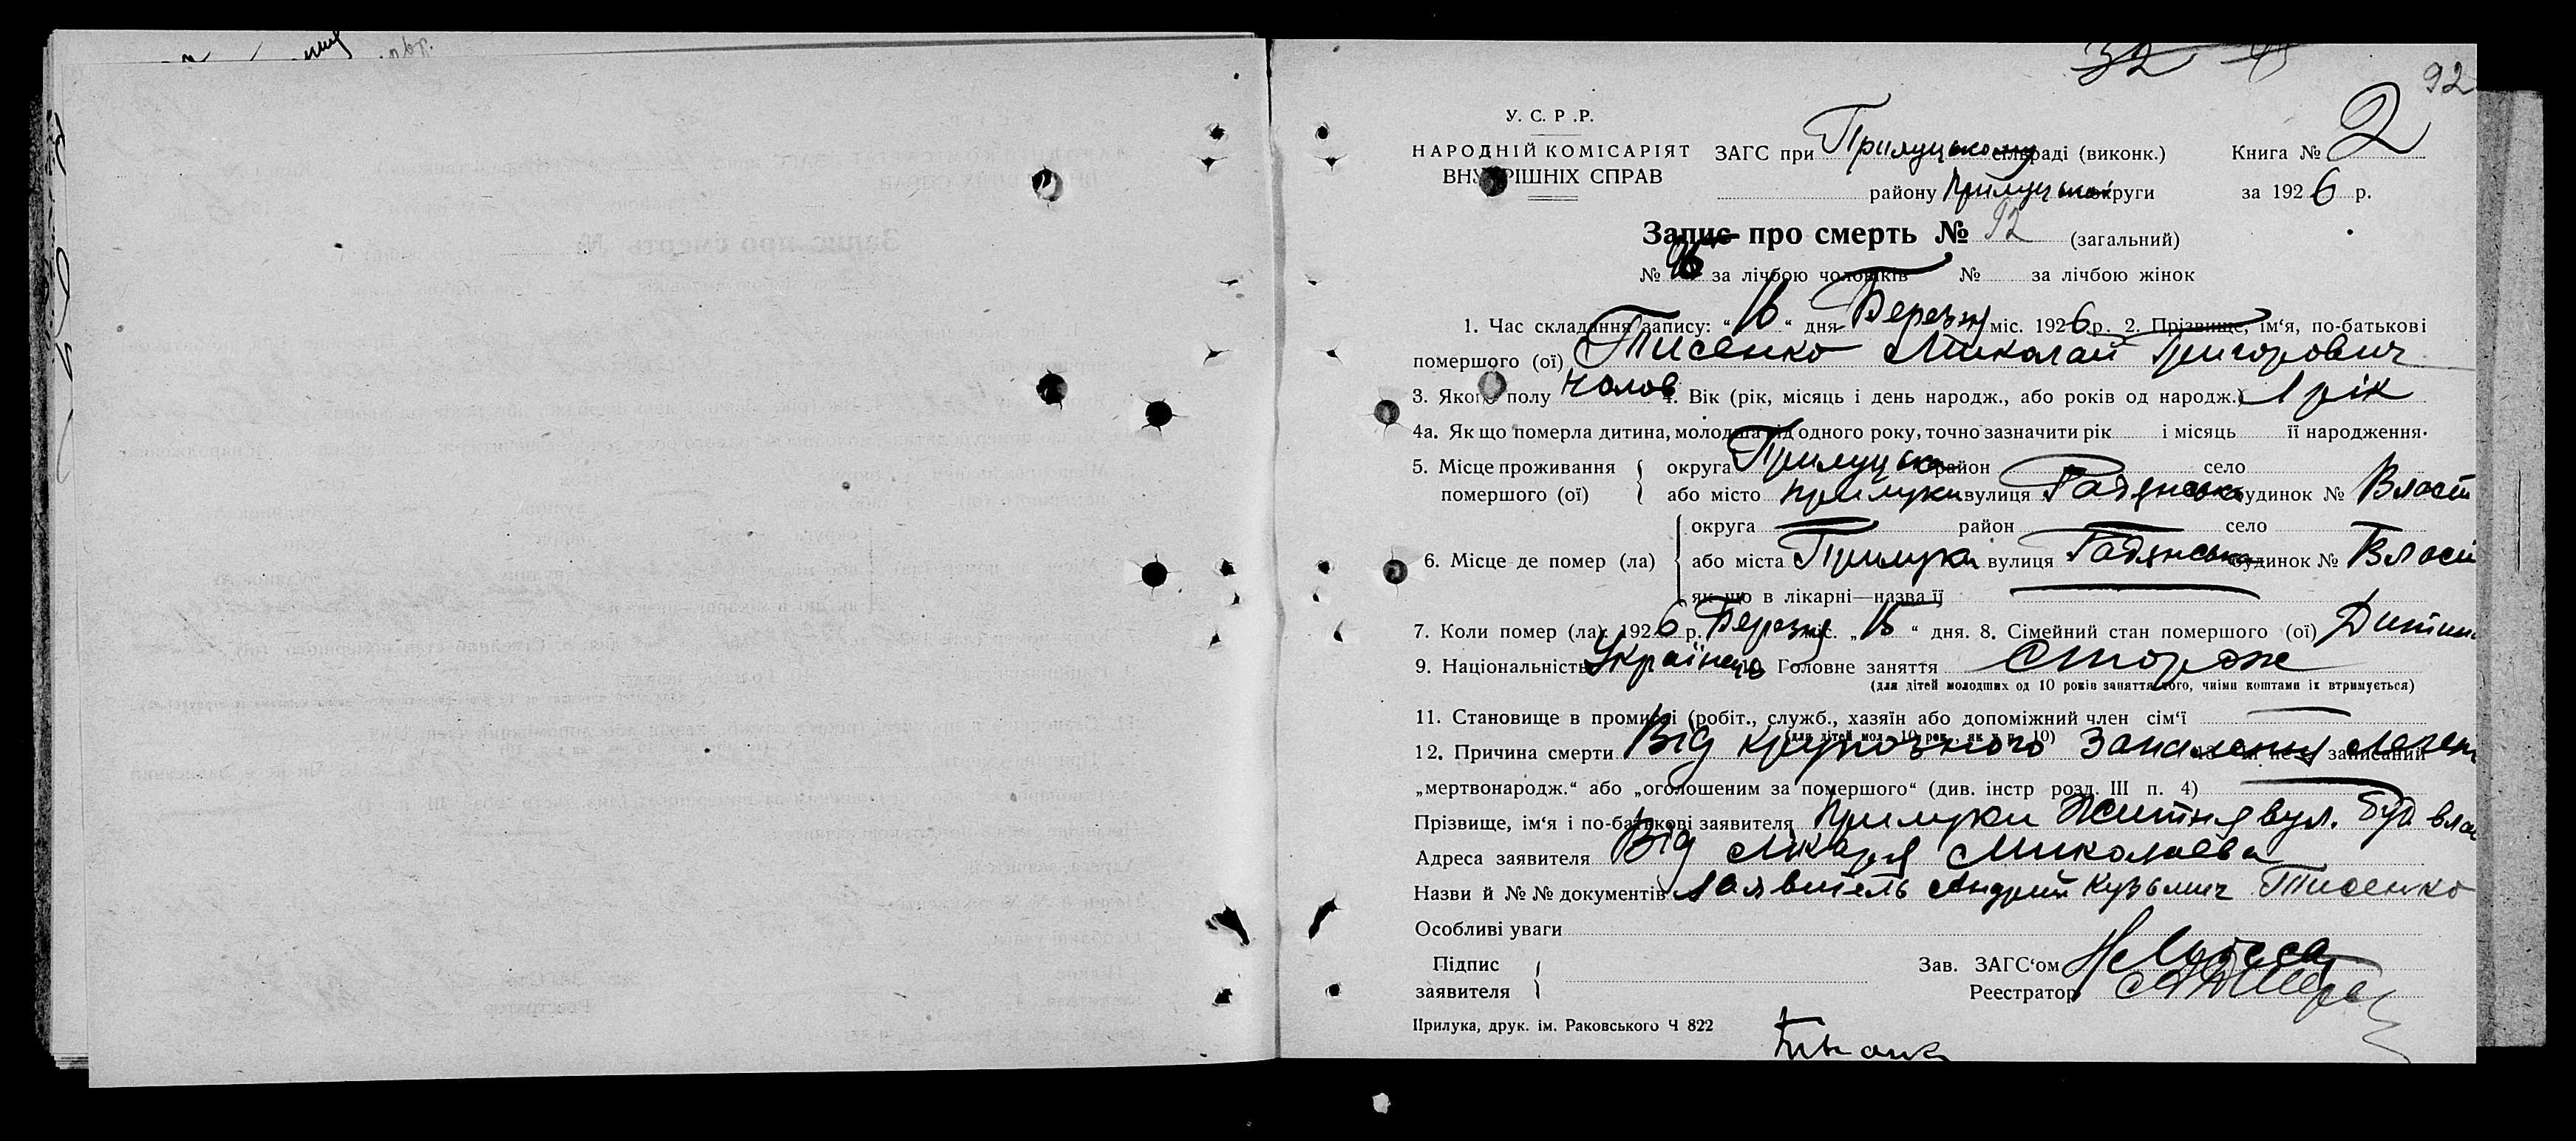 32
92
У. С. Р. Р.
НАРОДНІЙ КОМІСАРІЯТ ЗАГС при Прилуцькому сільраді (виконк.) Книга № 2
ВНУТРІШНІХ СПРАВ району Прилуцької округи за 1926 р.
Запис про смерть № 92 (загальний)
№ за лічбою чоловіків № за лічбою жінок
1. Час складання запису: “ 16 “ дня Березня міс. 1926 р. 2. Прізвище, ім‘я, по-батькові
помершого (ої) Тисенко Миколай Григорович
3. Якого полу Чолов 4. Вік (рік, місяць і день народж., або років од народж.) 1 рік
4а. Як що померла дитина, молодша від одного року, точно зазначити рік і місяць її народження.
5. Місце проживання округа Прилуцька район село
помершого (ої) або місто Прилуки вулиця Радянська будинок № Власн
округа район село
6. Місце де помер (ла) або міста Прилуки вулиця Радянська будинок № Власн
як що в лікарні—назва її
7. Коли помер (ла): 1926 р. Березня міс. „ 15 “ дня. 8. Сімейний стан помершого (ої) Дитин
9. Національність Українець Головне заняття Сторож
(для дітей молодших од 10 років заняття того, чиїми коштами їх втримується)
11. Становище в промислі (робіт., служб., хазяїн або допоміжний член сім‘ї
(для дітей мол. 10 рок., як у п. 10)
12. Причина смерти Від крупозного запалення легень 13 записаний
„мертвонародж.“ або „оголошеним за помершого“ (див. інстр розд. III п. 4)
Прізвище, ім‘я і по-батькові заявителя Прилуки Житня вул. буд влас
Адреса заявителя Від Лікаря Миколаєва
Назви й №№ документів Заявитель Андрий Кузьмич Тисенко
Особливі уваги
Підпис Зав. ЗАГС‘ом
заявителя Реєстратор
Прилука, друк. ім. Раковського Ч 822